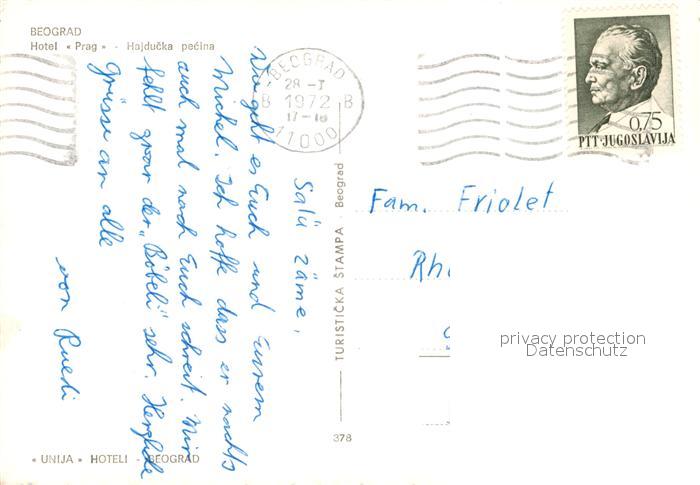 BEOGRAD
Hotel « Prag » - Hajdučka pećina
Salü zäme,
Wie geht es Euch und Eurem
Michel. Ich hoffe dass er nachts
auch mal nach Euch schreit. Mir
fehlt zwar der „Böbeli" sehr. Herzliche
Grüsse an alle
von Ruedi
« UNIJA » HOTELI - BEOGRAD
TURISTIČKA ŠTAMPA - Beograd
378
BEOGRAD
28 -7
B 1972 B
17-18
11000
0,75
PTT-JUGOSLAVIJA
Fam. Friolet
Rh
privacy protection
Datenschutz